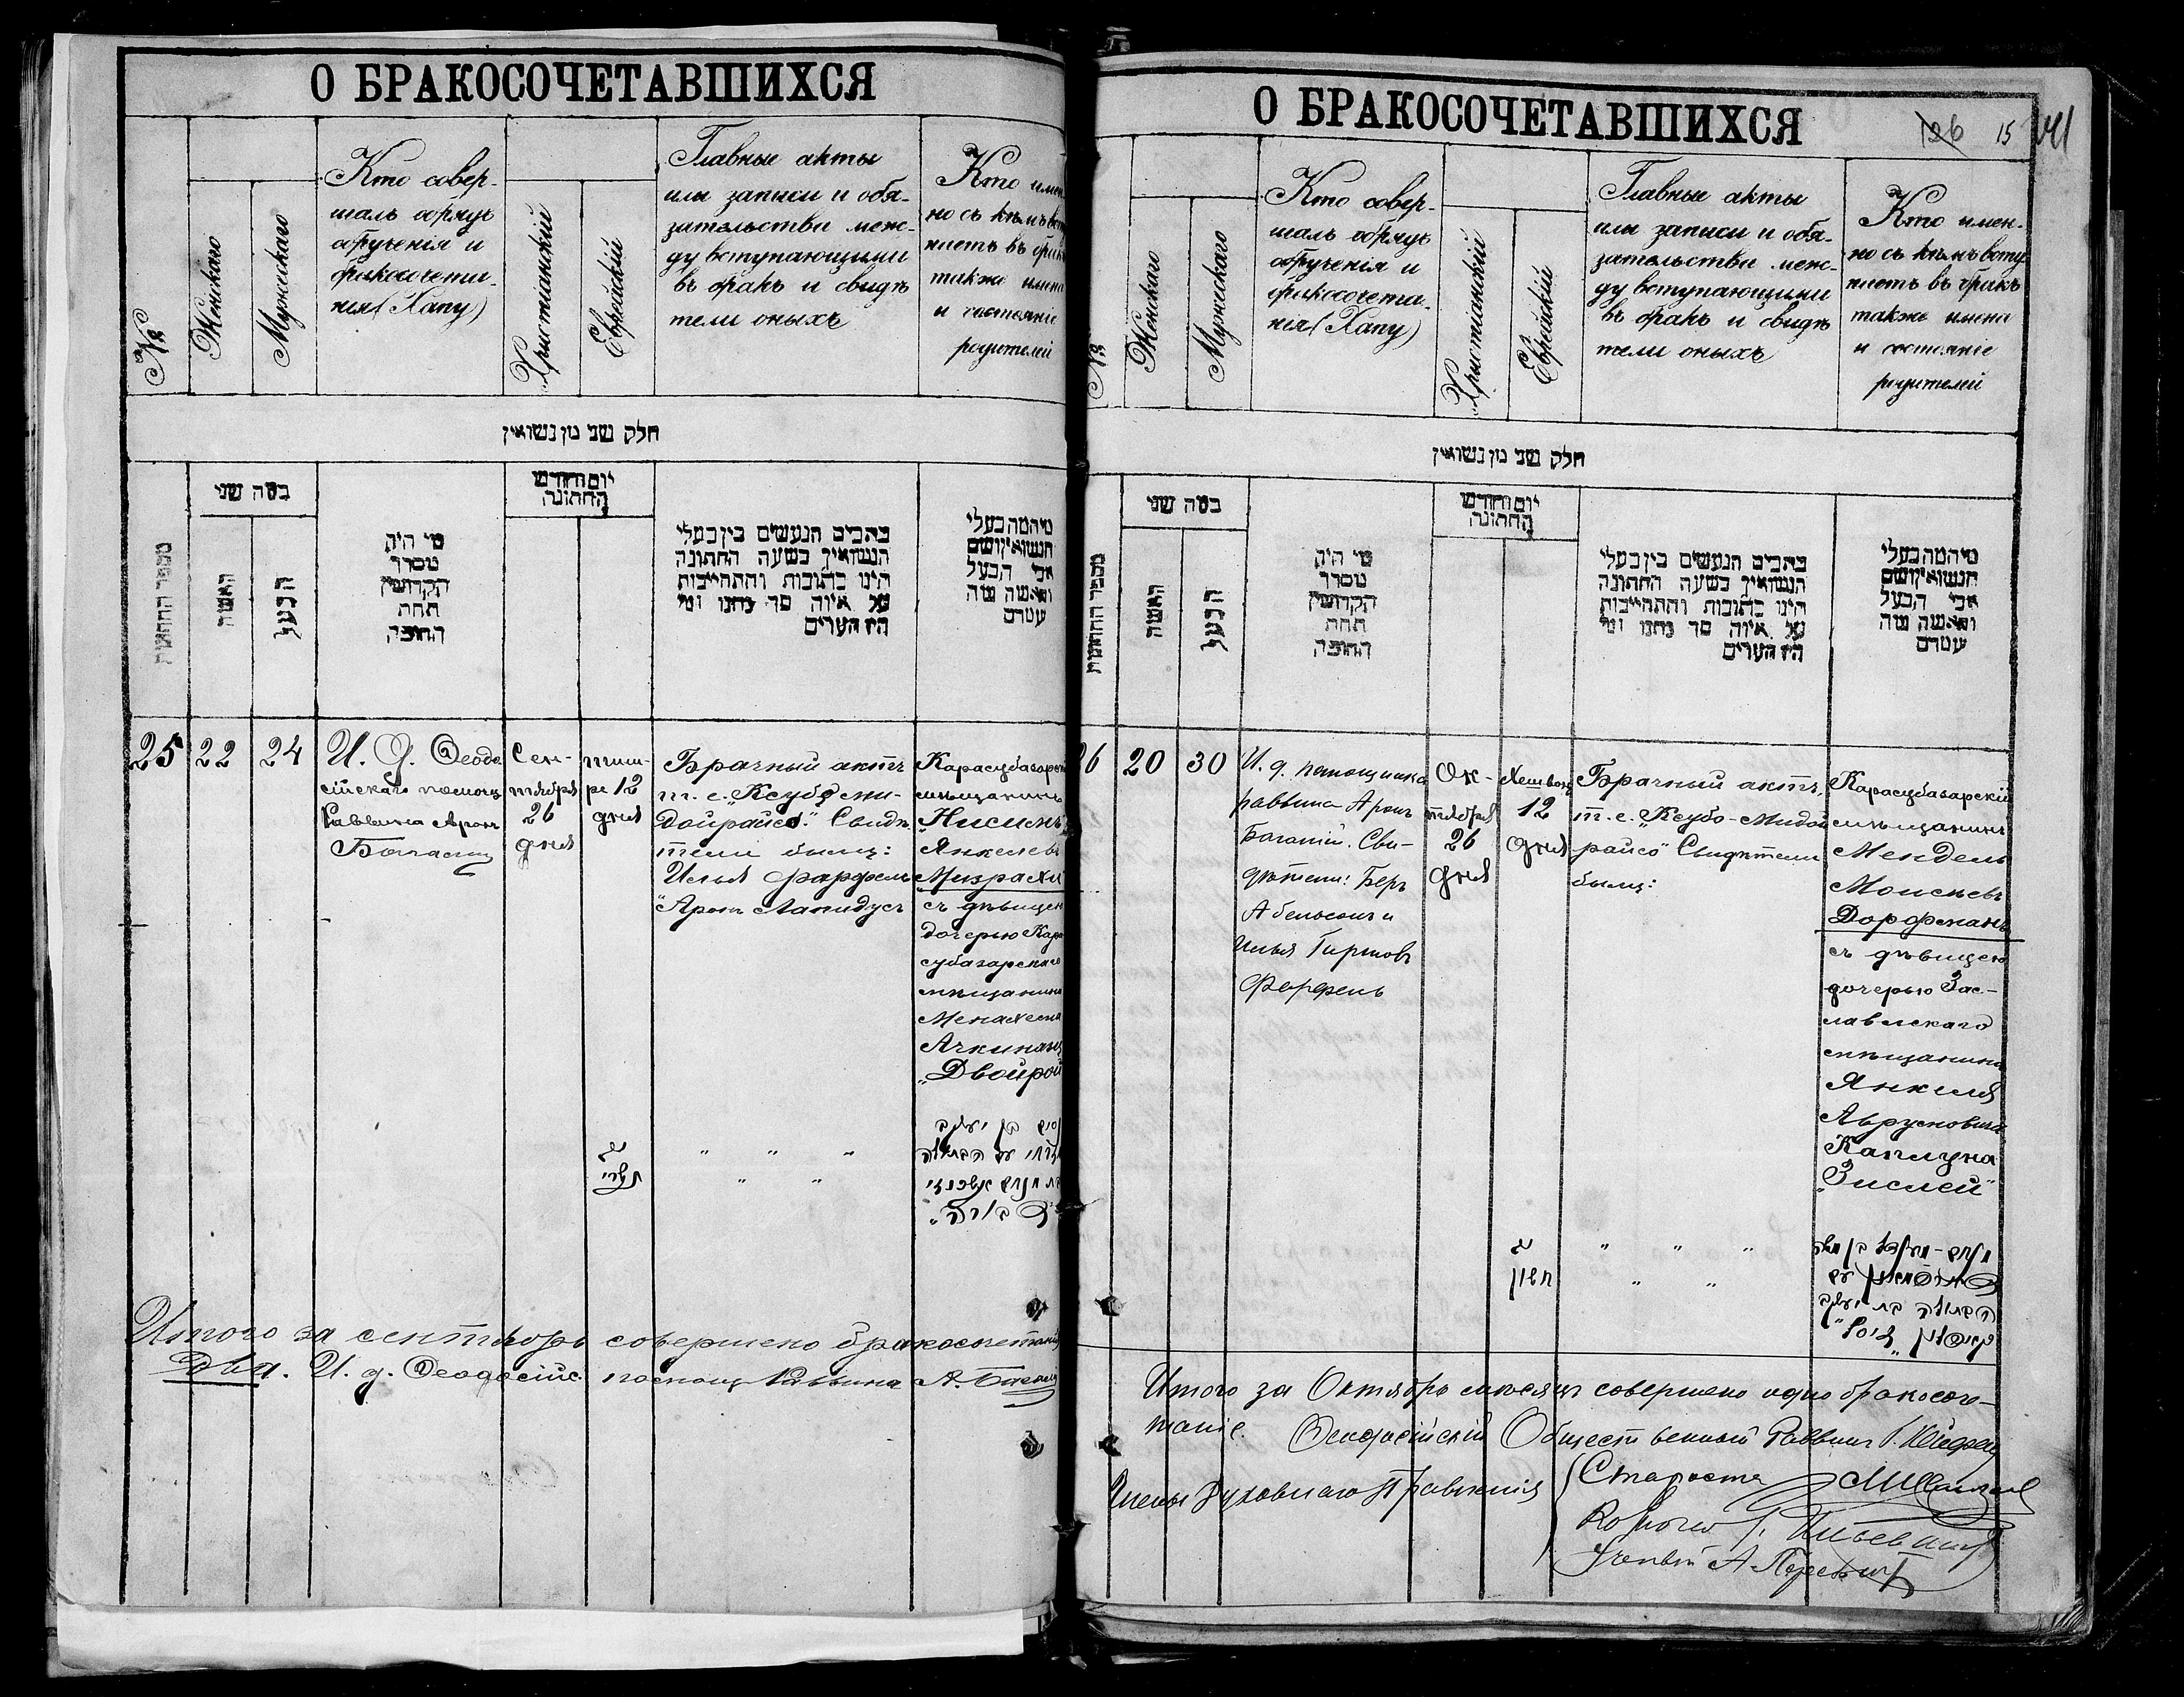 О БРАКОСОЧЕТАВШИХСЯ
№
Женскаго
Мужескаго
Кто совер-
шалъ обрядъ
обрученія и
бракосочета-
нія (Хапу)
Христіанскій
Еврейскій
Главные акты
или записи и обя-
зательства меж-
ду вступающими
въ бракъ и свидѣ
тели оныхъ
Кто имен
но съ кѣмъ всту
паетъ въ бракъ
также имена
и состояніе
родителей
חלק שני מן נשואין
מספר החתונות
כמה שני
האשה
הבעל
מי היה
מסדר
הקדושין
תחת
החופה
יום וחודש
החתונה
כתבים הנעשים בין בעלי
הנשואין בשעה החתונה
היינו כתובות והתחייבות
על איזה סך נתנו ומי
היו העדים
מי המה בעלי
הנשואין ושם
אבי הבעל
והאשה ומה
עמדם
25
22
24
И. д. Ѳеодо
сійскаго помощ
Раввина Аронъ
Сен-
тября
26
дня
тиш-
ре 12
дня
Брачный актъ
т. е. „Ксубо ми-
дойрайсо." Свидѣ
тели были:
Илья Фарфель
Аронъ Лапидусъ
Карасубазарскі
мѣщанинъ
„Нисимъ
Янкелевъ
Мизрахи
съ дѣвицею
дочерью Кара
субазарскаго
мѣщанина
Менахема
Ачкинази
„Двойрой
ניסים בן יעקב
מזרחי עם הבתולה
בת מנחם אשכנזי
דבורה "
יב
תשרי
Итого за сентябрь совершено бракосочетаній
два. И. д. Ѳеодосійс помощ Раввина А.
О БРАКОСОЧЕТАВШИХСЯ
126 15
№
Женскаго
Мужескаго
Кто совер-
шалъ обрядъ
обрученія и
бракосочета-
нія (Хапу)
Христіанскій
Еврейскій
Главные акты
или записи и обя-
зательства меж-
ду вступающими
въ бракъ и свидѣ
тели оныхъ
Кто имен-
но съ кѣмъ всту
паетъ въ бракъ
также имена
и состояніе
родителей
חלק שני מן נשואין
מספר החתונות
כמה שני
האשה
הבעל
מי היה
מסדר
הקדושין
תחת
החופה
יום וחודש
החתונה
כתבים הנעשים בין בעלי
הנשואין בשעה החתונה
היינו כתובות והתחייבות
על איזה סך נתנו ומי
היו העדים
מי המה בעלי
הנשואין ושם
אבי הבעל
והאשה ומה
עמדם
26
20
30
И. д. помощника
раввина Аронъ
Свидѣтели: Беръ
Абельсонъ и
Илья Гиршовъ
Фарфель
Ок-
тября
26
дня
Хешвонъ
12
дня
Брачный актъ,
т. е. „Ксубо-Мидой
райсо" Свидѣтели
были:
Карасубазарскій
мѣщанинъ
Мендель
Моисѣевъ
Дорфманъ
съ дѣвицею
дочерью Зас-
лавльскаго
мѣщанина
Янкеля
Аврумовича
Каплуна
„Зислей"
מנחם-מענדל בן משה
דארפמאן עם
הבתולה בת יעקב
קאפלון „זיסל"
יב
חשון
Итого за Октябрь мѣсяцъ совершено одно бракосоче-
таніе. Ѳеодосійскій Общественный Раввинъ
Члены Духовнаго Правленія
Староста
Ученый А.